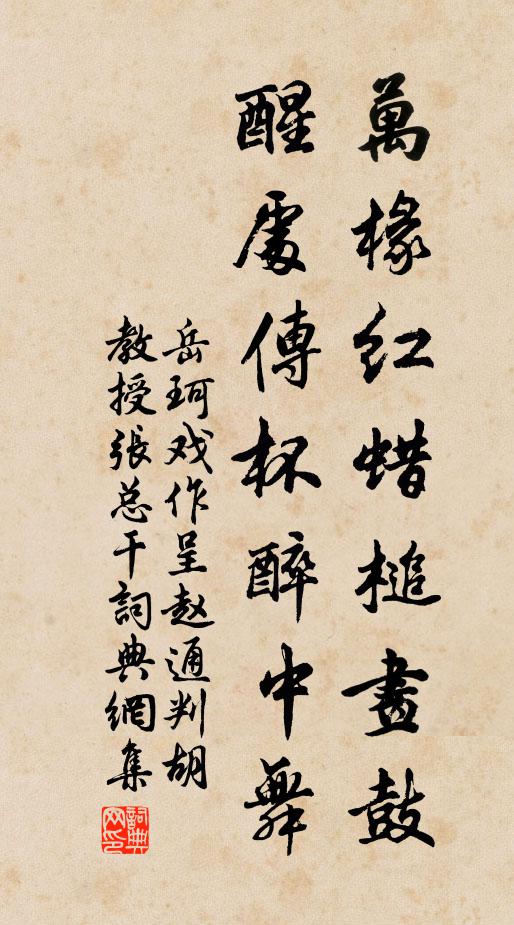 萬椽红蜡槌畫鼓
醒處傳杯醉中舞
岳珂戏作呈赵通判胡
教授張总干詞典網集
詞典
网印